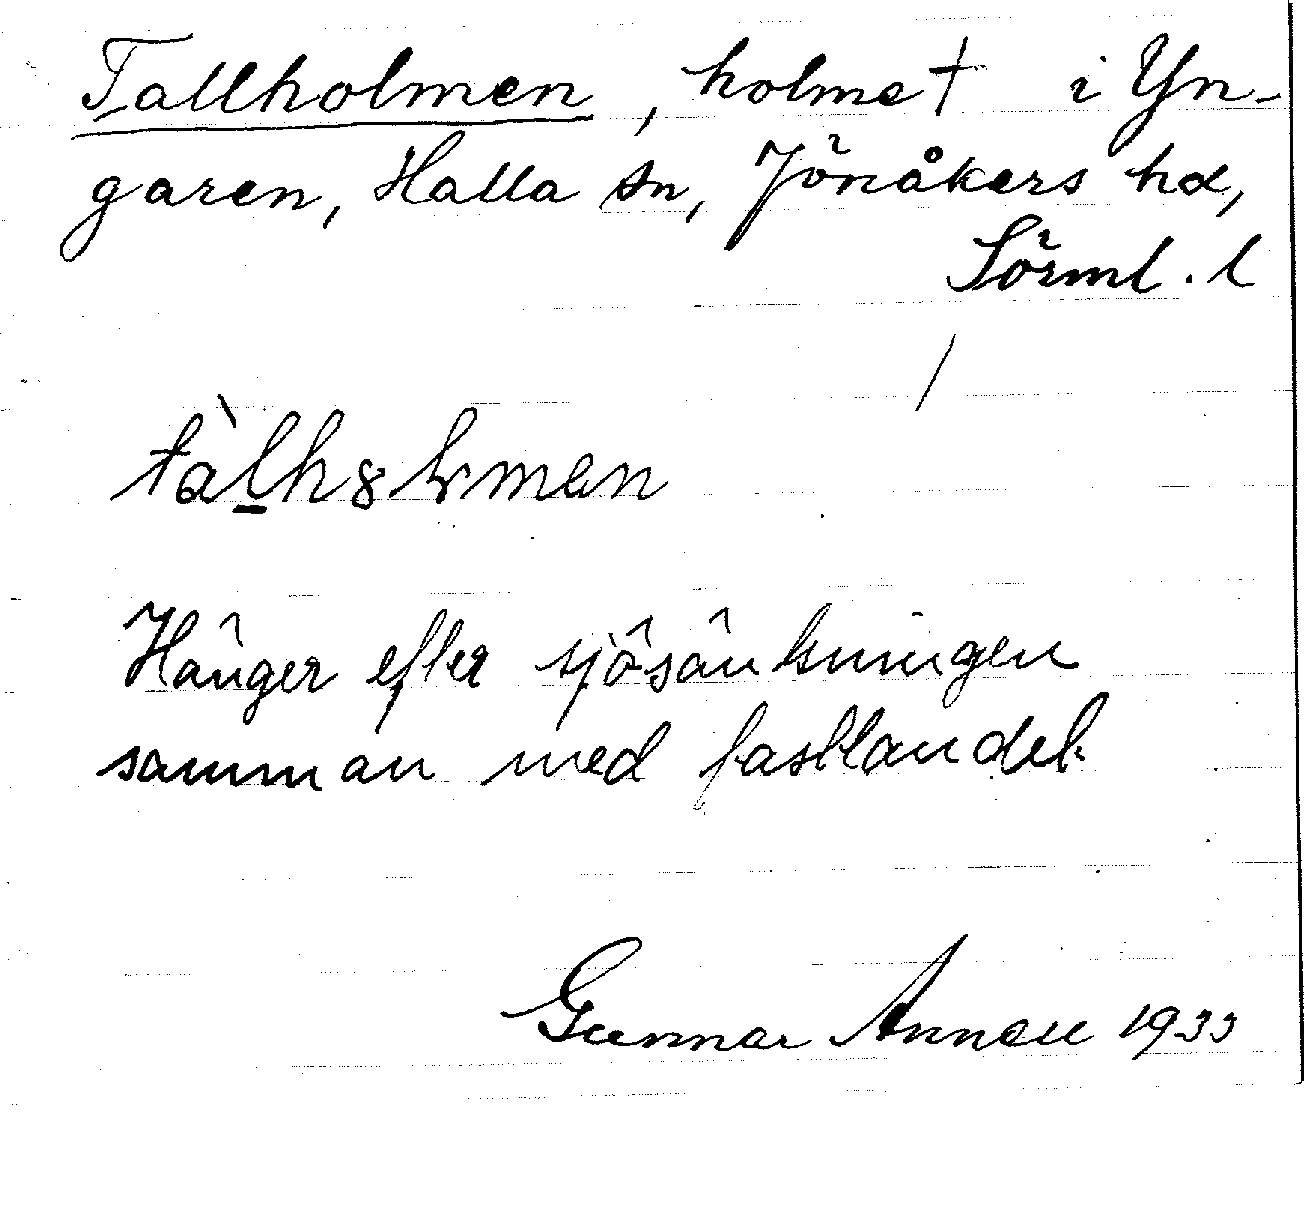 Tallholmen, holme † i Yn-
garen, Halla sn, Jönåkers hd,
Sörml. l
Hänger efter sjösänkningen
samman med fastlandet.
Gunnar Annell 1933